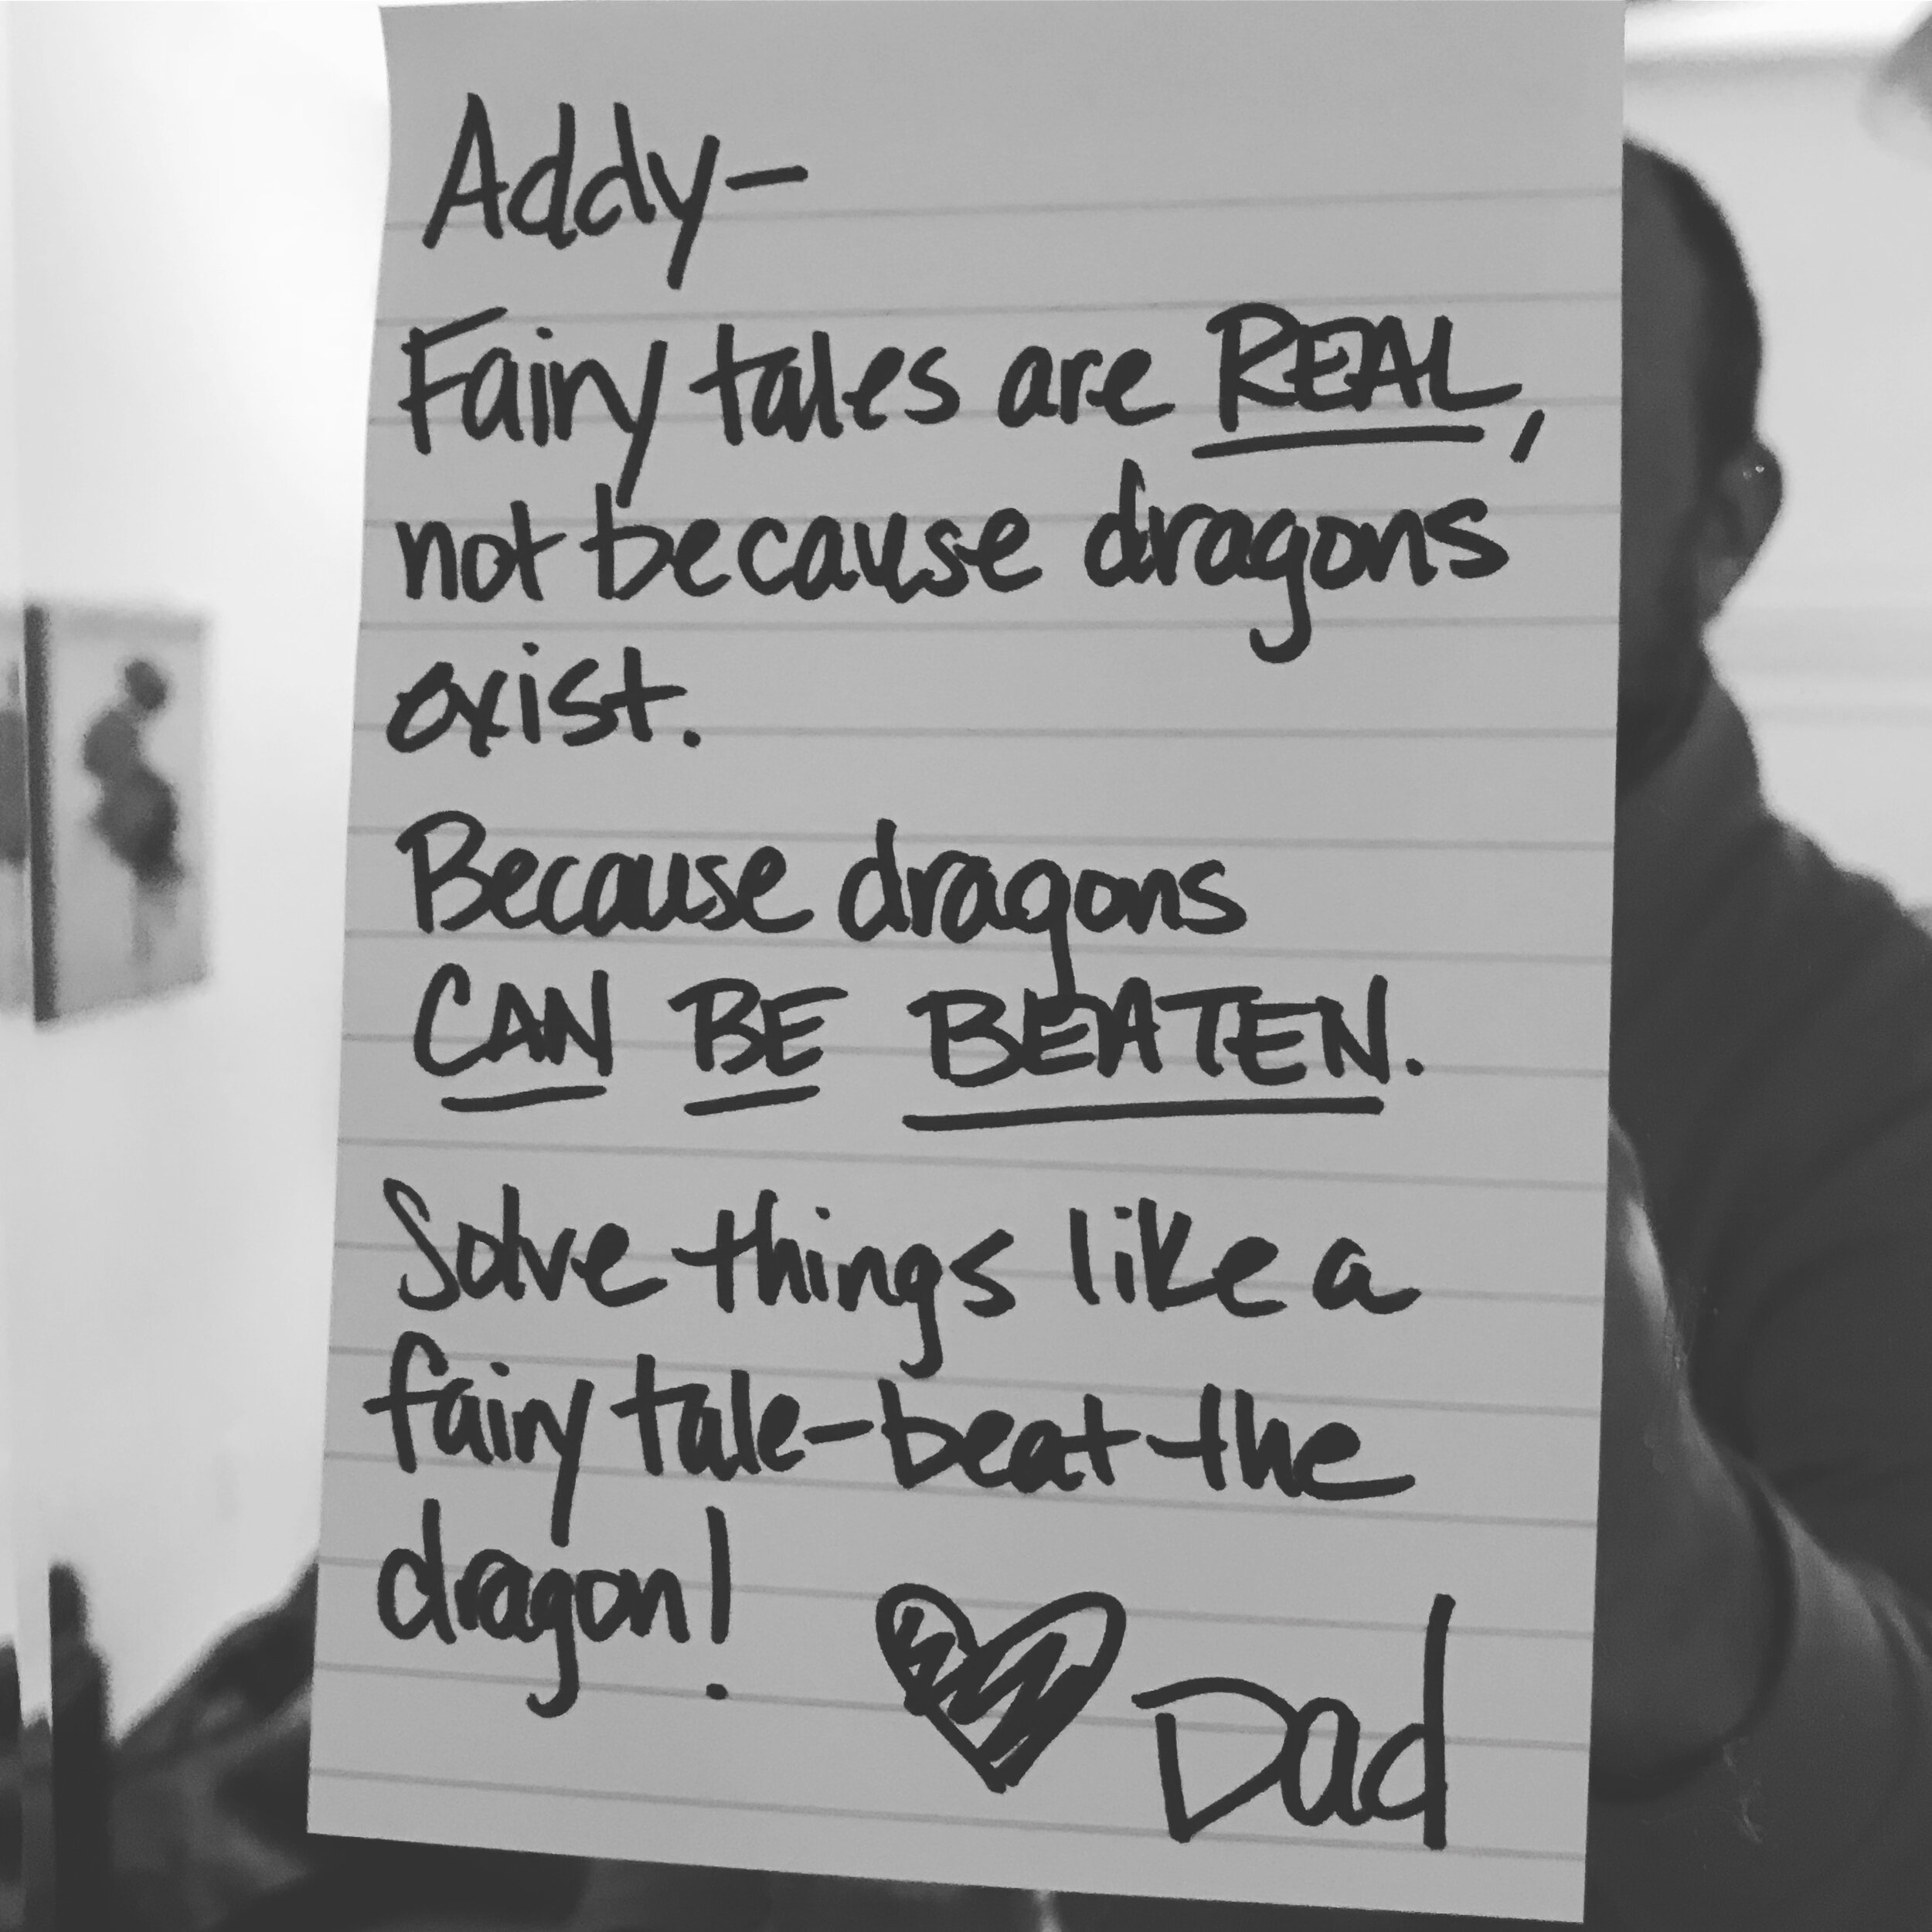 Addy-
Fairy tales are REAL,
not because dragons
exist.
Because dragons
CAN BE BEATEN.
Solve things like a
fairy tale-beat the
dragon!
Dad